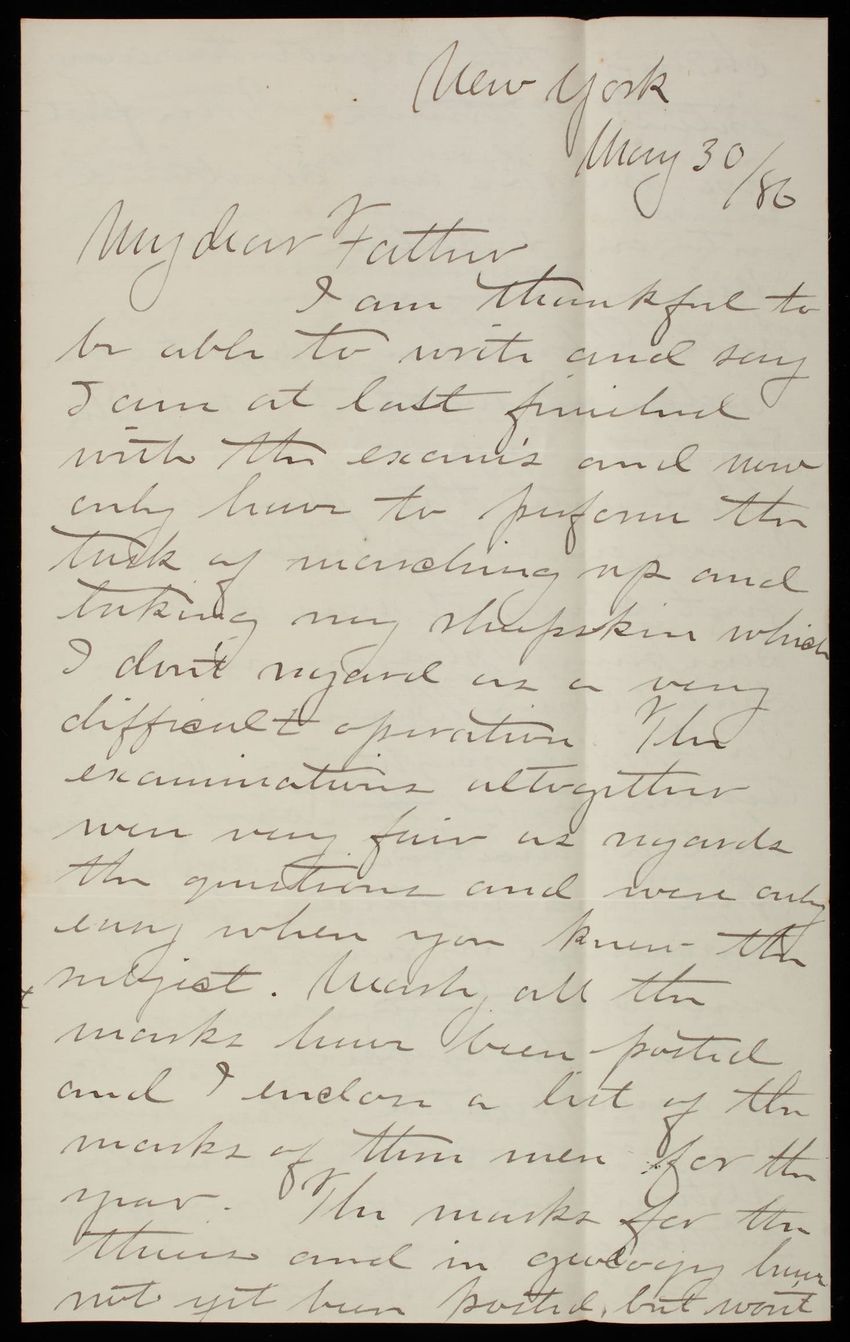 New York
May 30/86
My dear Father
I am thankful to
be able to write and say
I am at last finished
with the exams and now
only have to perform the
task of marching up and
taking my sheepskin which
I don't regard as a very
difficult operation The
examinations altogether
were very fair as regards
the questions and were only
easy when you knew the
subject. Nearly all the
marks have been posted
and I enclose a list of the
marks of three men for the
year. The marks for the
thesis and in geology have
not yet been posted, but won't